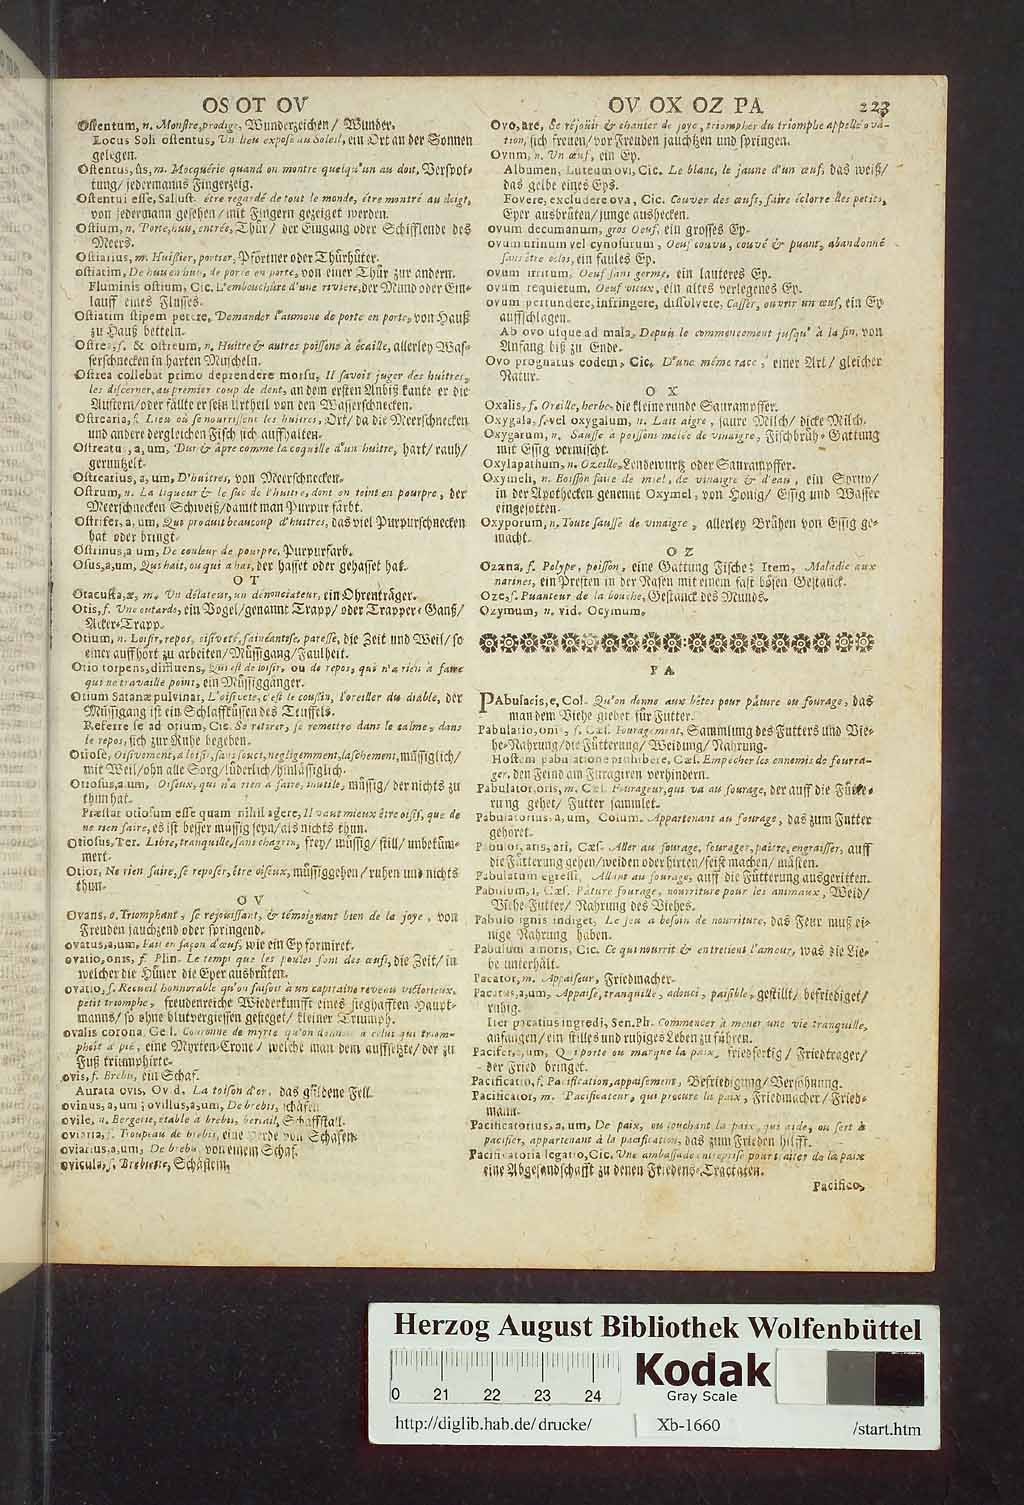 OS OT OV
Ostentum, n. Monstre, prodige, Wunderzeichen/ Wunder.
Locus Soli ostentus, Un lieu exposé au Soleil, ein Ort an der Sonnen
gelegen.
Ostentus, ûs, m. Mocquérie quand on montre quelqu'un au doit, Verspot-
tung/ jedermanns Fingerzeig.
Ostentui esse, Sallust. étre regardé de tout le monde, être montré au doigt,
von jedermann gesehen/ mit Fingern gezeiget werden.
Ostium, n. Porte, huis, entrée, Thür/ der Eingang oder Schifflende des
Meers.
Ostiarius, m. Huissier, portier, Pförtner oder Thürhüter.
ostiatim, De huis en huis, de porte en porte, von einer Thür zur andern.
Fluminis ostium, Cic. L'embouchûre d'une riviere, der Mund oder Ein-
lauff eines Flusses.
Ostiatim stipem petere, Demander l'aumone de porte en porte, von Hauß
zu Hauß betteln.
Ostrea, f. & ostreum, n. Huitre & autres poissons à êcaille, allerley Was-
serschnecken in harten Muscheln.
Ostrea callebat primo deprendere morsu, Il savoit juger des huitres,
les discerner, au premier coup de dent, an dem ersten Anbiß kante er die
Austern/ oder fällte er sein Urtheil von den Wasserschnecken.
Ostrearia, f. Lieu où se nourrissent les huitres, Ort/ da die Meerschnecken
und andere dergleichen Fisch sich auffhalten.
Ostreatus, a, um, Dur & âpre comme la coquille d'un huitre, hart/ rauh/
geruntzelt.
Ostrearius, a, um, D'huitres, von Meerschnecken.
Ostrum, n. La liqueur & le suc de l'huitre, dont on teint en pourpre, der
Meerschnecken Schweiß/ damit man Purpur färbt.
Ostrifer, a, um, Qui produit beaucoup d'huitres, das viel Purpurschnecken
hat oder bringt.
Ostrinus, a um, De couleur de pourpre, Purpurfarb.
Osus, a, um, Qui hait, ou qui a haï, der hasset oder gehasset hat.
O T
Otacusta, æ, m. Un délateur, un dénonciateur, ein Ohrenträger.
Otis, f. Une outarde, ein Vogel/ genannt Trapp/ oder Trappen-Ganß/
Acker-Trapp.
Otium, n. Loisir, repos, oisiveté, fainéantise, paresse, die Zeit und Weil/ so
einer auffhört zu arbeiten/ Müssigang/ Faulheit.
Otio torpens, diffluens, Qui est de loisir, ou de repos, qui n'a rien à faire
qui ne travaille point, ein Müssiggänger.
Otium Satanæ pulvinar, L'oisiveté, c'est le coussin, l'oreiller du diable, der
Müssigang ist ein Schlaffküssen des Teuffels.
Referre se ad otium, Cic. Se retirer, se remettre dans le calme, dans
le repos, sich zur Ruhe begeben.
Otiosè, Oisivement, à loisir, sans souci, negligemment, laschement, müssiglich/
mit Weil/ ohn alle Sorg/ lüderlich/ hinlässiglich.
Otiosus, a, um, Oiseux, qui n'a rien à faire, inutile, müssig/ der nichts zu
thun hat.
Præstat otiosum esse quam nihil agere, Il vaut mieux être oisif, que de
ne rien faire, es ist besser müssig seyn/ als nichts thun.
Otiosus, Ter. Libre, tranquille, sans chagrin, frey/ müssig/ still/ unbeküm-
mert.
Otior, Ne rien faire, se reposer, être oiseux, müssiggehen/ ruhen und nichts
thun.
O V
Ovans, o. Triomphant, se rejouissant, & témoignant bien de la joye, von
Freuden jauchzend oder springend.
ovatus, a, um, Fait en façon d'œuf, wie ein Ey formiret.
ovatio, onis, f. Plin. Le temps que les poules font des œufs, die Zeit/ in
welcher die Hüner die Eyer ausbrüten.
ovatio, f. Recueil honnorable qu'on faisoit à un capitaine revenu victorieux,
petit triomphe, freudenreiche Wiederkunfft eines sieghafften Haupt-
manns/ so ohne blutvergiessen gesieget/ kleiner Triumph.
ovalis corona, Gell. Couronne de myrte qu'on donnoit à celui qui triom-
phoit à pié, eine Myrten-Crone/ welche man dem auffsetzte/ der zu
Fuß triumphirte.
ovis, f. Brebis, ein Schaf.
Aurata ovis, Ovid. La toison d'or, das güldene Fell.
ovinus, a, um; ovillus, a, um, De brebis, schäfen.
ovile, n. Bergerie, etable à brebis, bercail, Schaffstall.
oviaria, f. Troupeau de brebis, eine Herde von Schafen.
oviarius, a, um, De brebis, von einem Schaf.
ovicula, f. Brebiete, Schäflein,
OV OX OZ PA 223
Ovo, are, Se réjoüir & chanter de joye, triompher du triomphe appellé ova-
tion, sich freuen/ vor Freuden jauchtzen und springen.
Ovum, n. Un œuf, ein Ey.
Albumen, Luteum ovi, Cic. Le blanc, le jaune d'un œuf, das weiß/
das gelbe eines Eys.
Fovere, excludere ova, Cic. Couver des œufs, faire éclorre des petits,
Eyer ausbrüten/ junge aushecken.
ovum decumanum, gros Oeuf, ein grosses Ey.
ovum urinum vel cynosurum, Oeuf couvu, couvé & puant, abandonné
sans être éclos, ein faules Ey.
ovum irritum, Oeuf sans germe, ein lauteres Ey.
ovum requietum, Oeuf vieux, ein altes verlegenes Ey.
ovum pertundere, infringere, dissolvere, Casser, ouvrir un œuf, ein Ey
auffschlagen.
Ab ovo usque ad mala, Depuis le commencement jusqu' à la fin, von
Anfang biß zu Ende.
Ovo prognatus eodem, Cic. D'une même race, einer Art/ gleicher
Natur.
O X
Oxalis, f. Oseille, herbe, die kleine runde Saurampffer.
Oxygala, f. vel oxygalum, n. Lait aigre, saure Milch/ dicke Milch.
Oxygarum, n. Sausse à poissons melée de vinaigre, Fischbrüh-Gattung
mit Essig vermischt.
Oxylapathum, n. Ozeille, Lendewurtz oder Saurampffer.
Oxymeli, n. Boisson faite de miel, de vinaigre & d'eau, ein Syrup/
in der Apothecken genennt Oxymel, von Honig/ Essig und Wasser
eingesotten.
Oxyporum, n. Toute sausse de vinaigre, allerley Brühen von Essig ge-
macht.
O Z
Ozæna, f. Polype, poisson, eine Gattung Fische; Item, Maladie aux
narines, ein Presten in der Nasen mit einem fast bösen Gestanck.
Oze, f. Puanteur de la bouche, Gestanck des Munds.
Ozymum, n. vid. Ocymum.
P A
PAbularis, e, Col. Qu'on donne aux bêtes pour pâture ou fourage, das
man dem Viehe giebet für Futter.
Pabulatio, onis, f. Cæs. Fouragement, Sammlung des Futters und Vie-
he-Nahrung/ die Fütterung/ Weidung/ Nahrung.
Hostem pabulatione prohibere, Cæs. Empêcher les ennemis de fourra-
ger, den Feind am Furagiren verhindern.
Pabulator, oris, m. Cæs. Fourageur, qui va au fourage, der auff die Fütte-
rung gehet/ Futter sammlet.
Pabulatorius, a, um, Colum. Appartenant au fourage, das zum Futter
gehöret.
Pabulor, aris, ari, Cæs. Aller au fourage, fourager, paitre, engraisser, auff
die Fütterung gehen/ weiden oder hirten/ feist machen/ mästen.
Pabulatum egressi, Allant au fourage, auff die Fütterung ausgeritten.
Pabulum, i, Cæs. Pâture fourage, nourriture pour les animaux, Weid/
Viehe-Futter/ Nahrung des Viehes.
Pabulo ignis indiget, Le feu a besoin de nourriture, das Feur muß ei-
nige Nahrung haben.
Pabulum amoris, Cic. Ce qui nourrit & entretient l'amour, was die Lie-
be unterhält.
Pacator, m. Appaiseur, Friedmacher.
Pacatus, a, um, Appaisé, tranquille, adouci, paisible, gestillt/ befriediget/
ruhig.
Iter pacatius ingredi, Sen. Ph. Commencer à mener une vie tranquille,
anfangen/ ein stilles und ruhiges Leben zu führen.
Pacifer, a, um, Qui porte ou marque la paix, friedfertig/ Friedtrager/
der Fried bringet.
Pacificatio, f. Pacification, appaisement, Befriedigung/ Versöhnung.
Pacificator, m. Pacificateur, qui procure la paix, Friedmacher/ Fried-
mann.
Pacificatorius, a, um, De paix, ou touchant la paix, qui aide, ou sert à
pacifier, appartenant à la pacification, das zum Frieden hilfft.
Pacificatoria legatio, Cic. Une ambassade entreprise pour traiter de la paix
eine Abgesandschafft zu denen Friedens-Tractaten.
Pacifico,
Herzog August Bibliothek Wolfenbüttel
0 21 22 23 24
Kodak
Gray Scale
http://diglib.hab.de/drucke/ Xb-1660 /start.htm